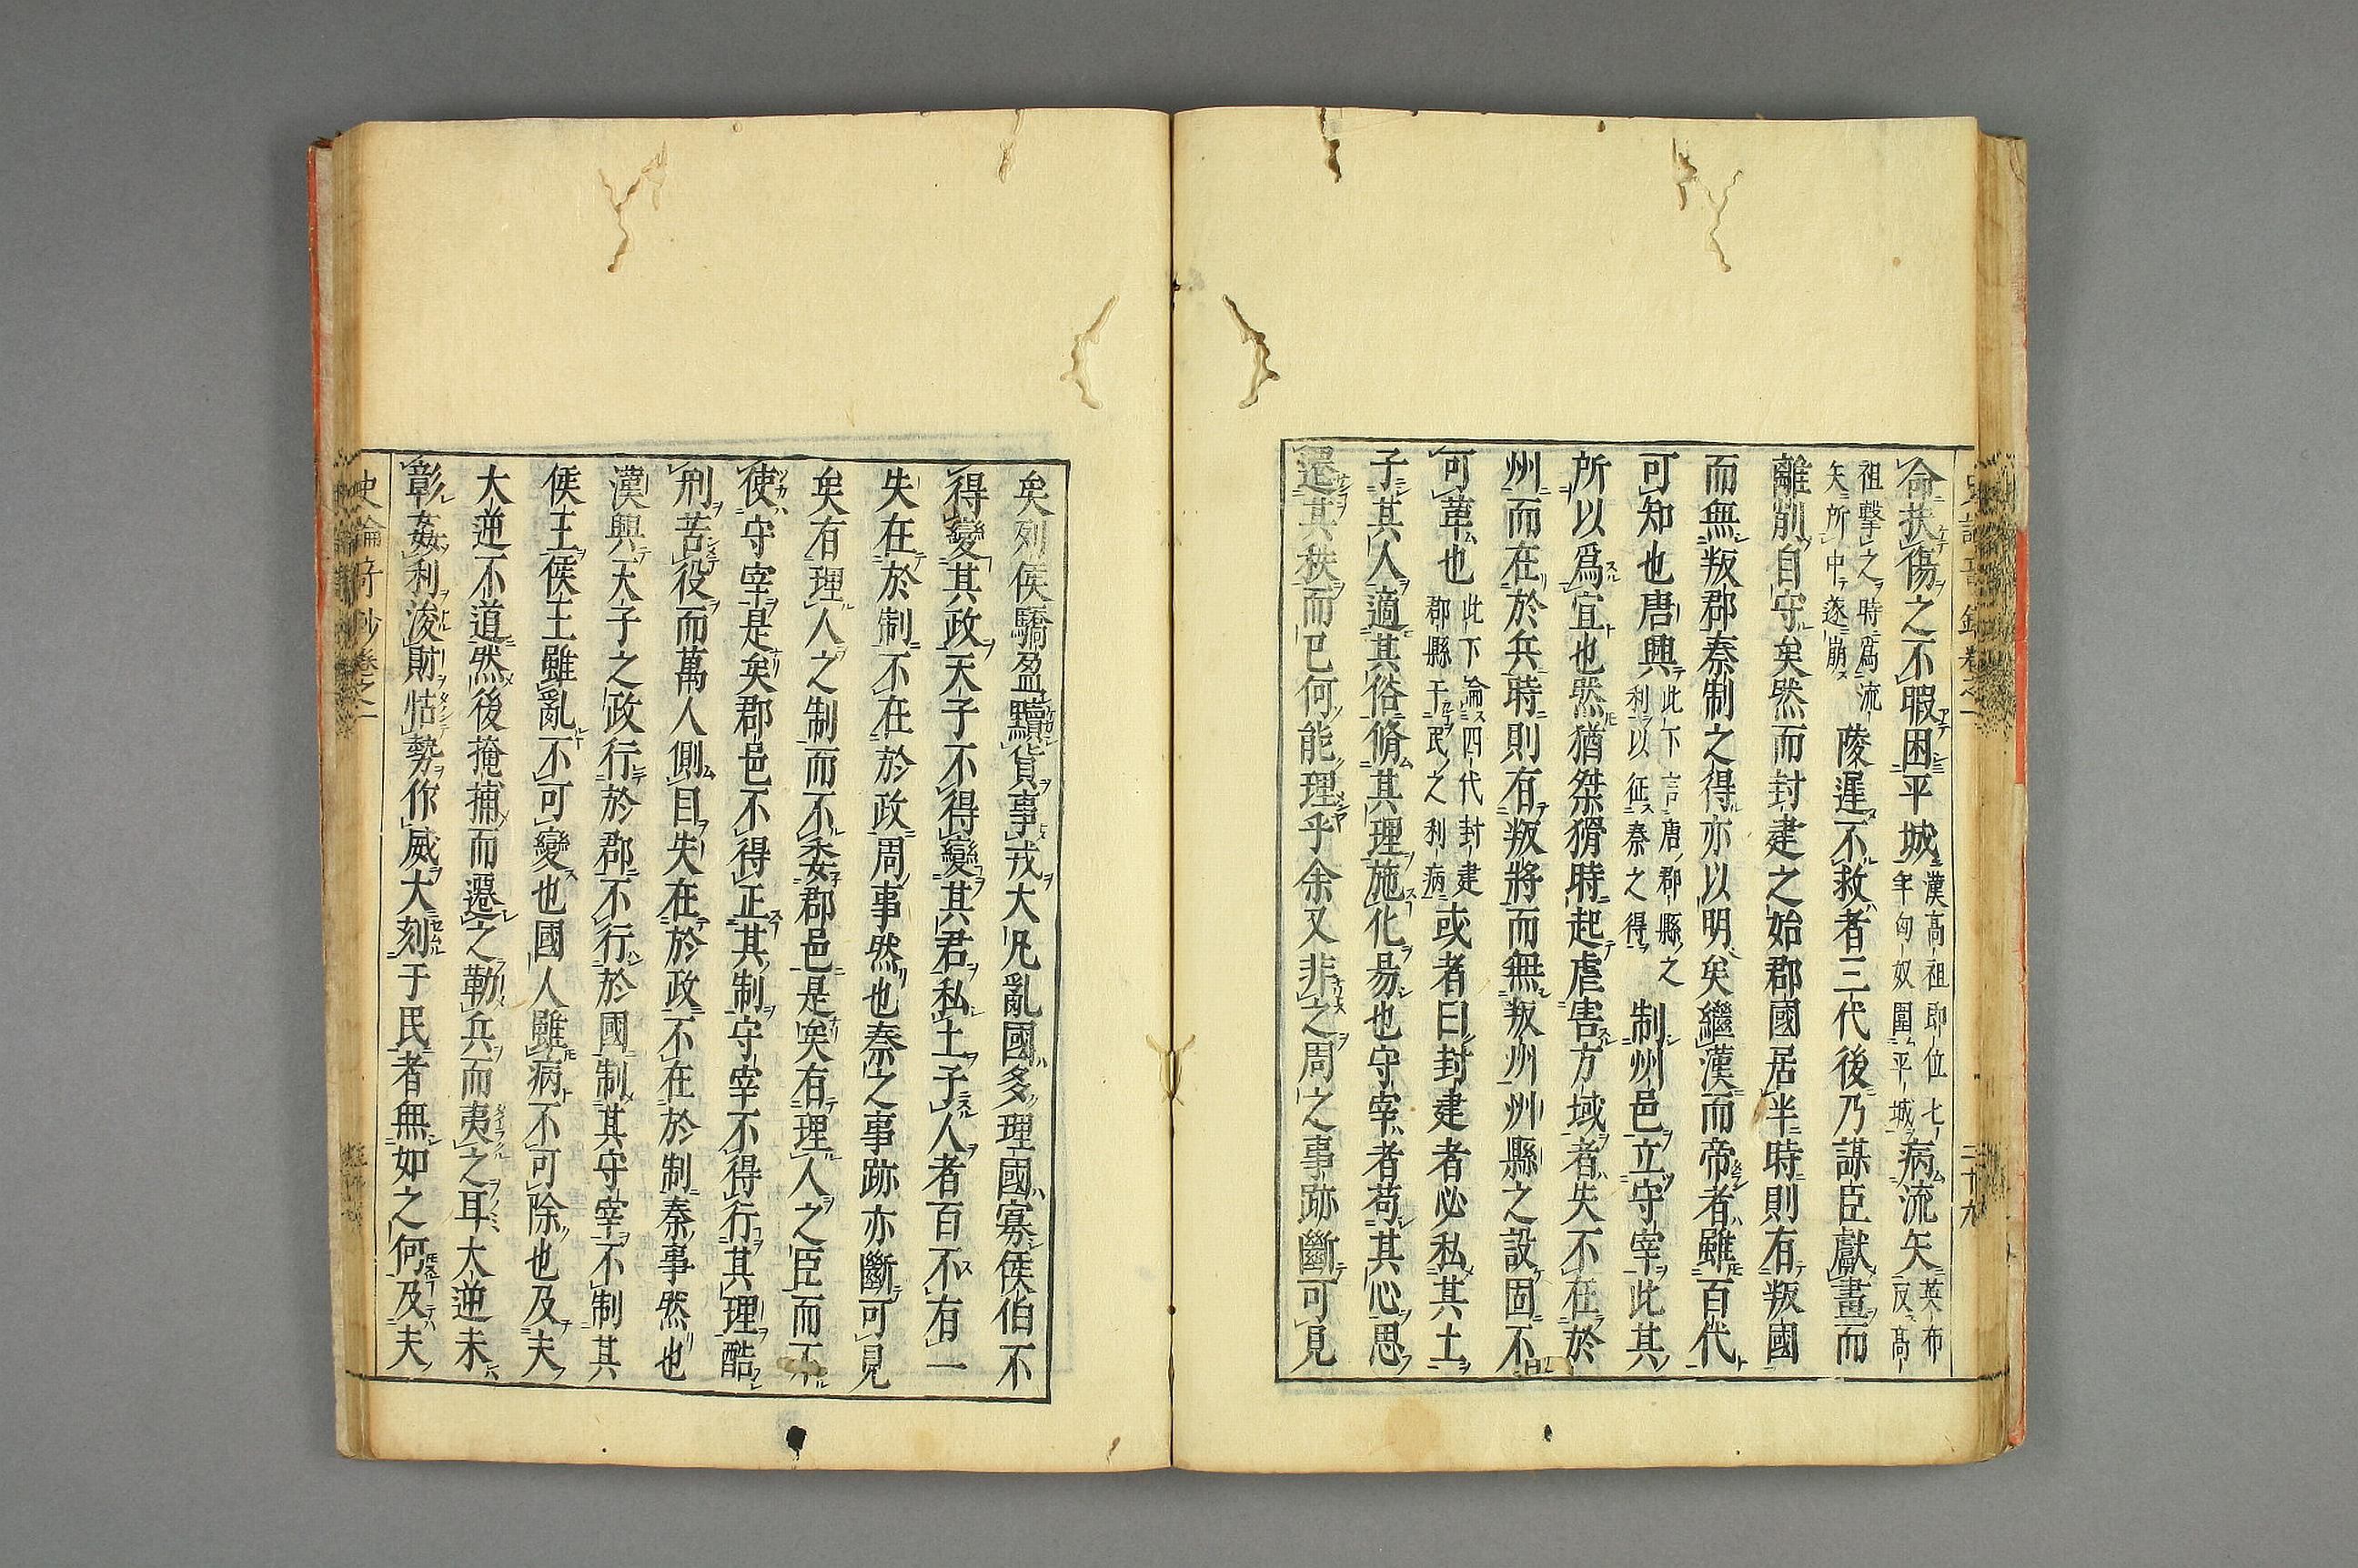 命扶傷之不暇困平城漢高祖即位七年匈奴圍平城病流矢英布反高
祖擊之時爲流矢所中遂崩陵遲不救者三代後乃謀臣獻畫而
離削自守矣然而封建之始郡國居半時則有叛國
而無叛郡秦制之得亦以明矣繼漢而帝者雖百代
可知也唐興此下言唐郡縣之利以征秦之得制州邑立守宰此其
所以爲宜也然猶桀猾時起虐害方域者失不在於
州而在於兵時則有叛將而無叛州州縣之設固不
可革也此下論四代封建郡縣于民之利病或者曰封建者必私其土
子其人適其俗脩其理施化易也守宰者苟其心思
遷其秩而已何能理乎余又非之周之事跡斷可見
矣列侯驕盈黷貨事戎大凡亂國多理國寡侯伯不
得變其政天子不得變其君私土子人者百不有一
失在於制不在於政周事然也秦之事跡亦斷可見
矣有理人之制而不委郡邑是矣有理人之臣而不
使守宰是矣郡邑不得正其制守宰不得行其理酷
刑苦役而萬人側目失在於政不在於制秦事然也
漢興天子之政行於郡不行於國制其守宰不制其
侯王侯王雖亂不可變也國人雖病不可除也及夫
大逆不道然後掩捕而遷之勒兵而夷之耳大逆未
彰姦利浚財怙勢作威大刻于民者無如之何及夫
史論奇鈔卷之二